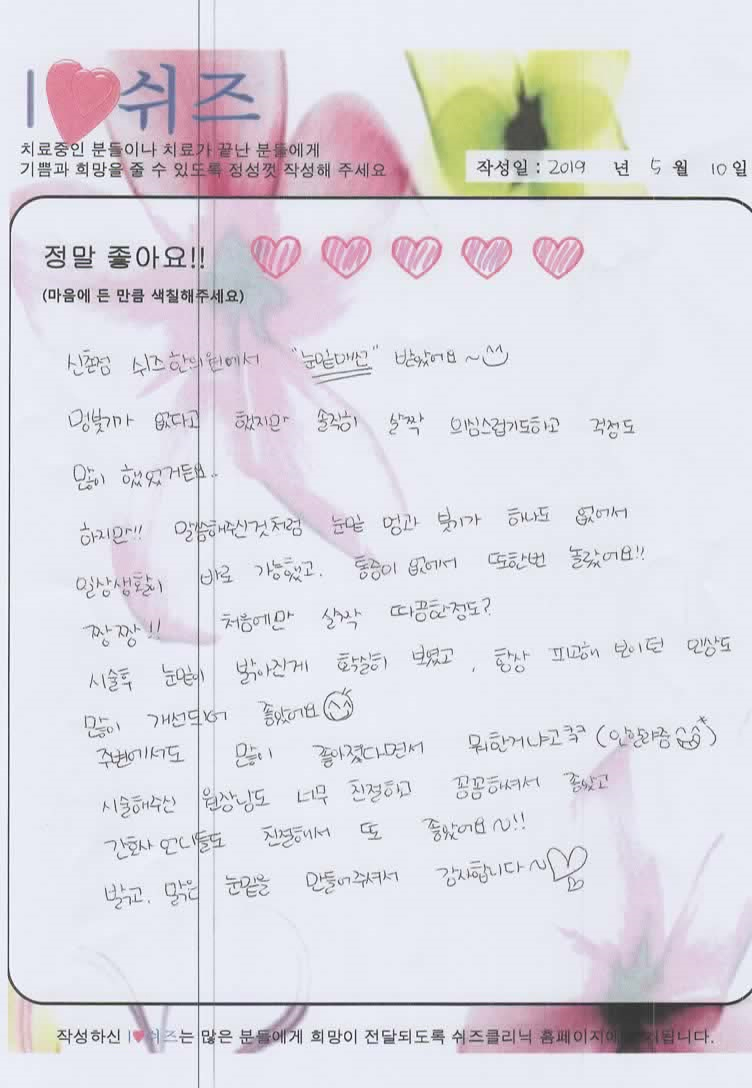 I ♥ 쉬즈
치료중인 분들이나 치료가 끝난 분들에게
기쁨과 희망을 줄 수 있도록 정성껏 작성해 주세요
작성일 : 2019 년 5 월 10 일
정말 좋아요!!
(마음에 든 만큼 색칠해주세요)
신촌점 쉬즈한의원에서 "눈밑매선" 받았어요~
멍붓기가 없다고 했지만 솔직히 살짝 의심스럽기도하고 걱정도
많이 했었거든요..
하지만!! 말씀해주신것처럼 눈밑 멍과 붓기가 하나도 없어서
일상생활이 바로 가능했고, 통증이 없어서 또한번 놀랐어요!!
짱짱!! 처음에만 살짝 따끔한정도?
시술후 눈밑이 밝아진게 확실히 보였고, 항상 피곤해 보이던 인상도
많이 개선되어 좋았어요
주변에서도 많이 좋아졌다면서 뭐한거냐고 ㅋㅋ (안알랴줌)
시술해주신 원장님도 너무 친절하고 꼼꼼하셔서 좋았고
간호사 언니들도 친절해서 또 좋았어요~!!
밝고, 맑은 눈밑을 만들어주셔서 감사합니다~♡
작성하신 I♥쉬즈는 많은 분들에게 희망이 전달되도록 쉬즈클리닉 홈페이지에 됩니다.